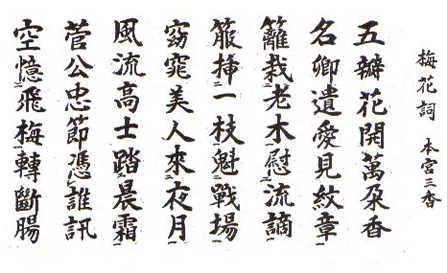 梅花詞 本宮三香
五瓣花開萬朶香
名卿遺愛見紋章
籬栽老木慰流謫
箙挿一枝魁戰場
窈窕美人來夜月
風流高士踏晨霜
菅公忠節憑誰訊
空憶飛梅轉斷腸